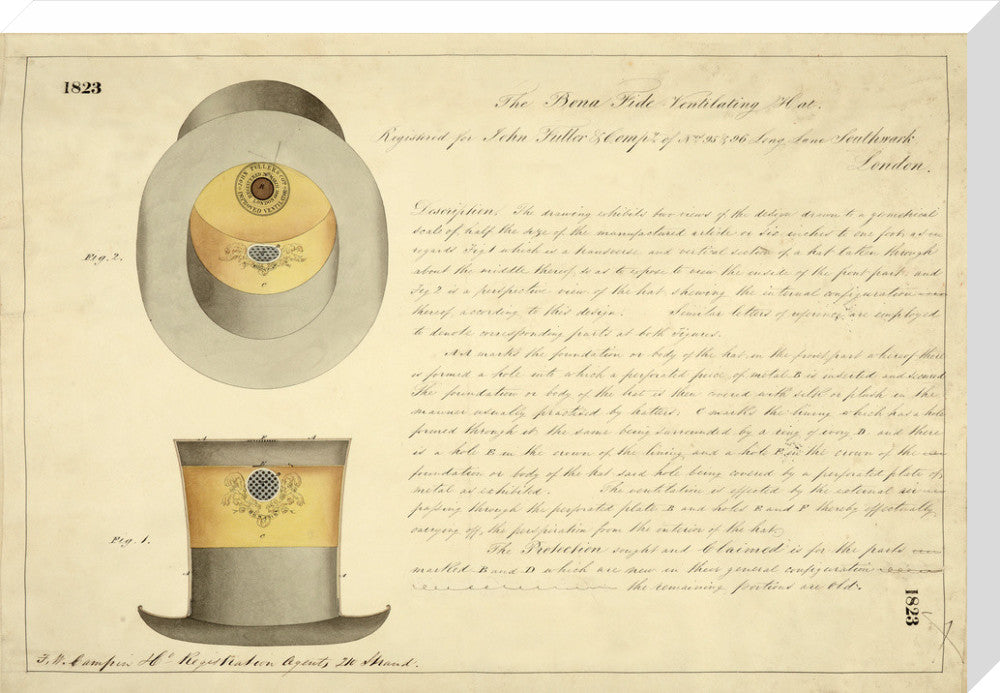 1823
The Bona Fide Ventilating Hat.
Registered for John Fuller & Compy. of Nos. 95 & 96 Long Lane Southwark
London.
JOHN FULLER & CO'S
LONDON
IMPROVED VENTILATOR
Fig. 2.
C
Description. The drawing exhibits two views of the design drawn to a geometrical
scale of half the size of the manufactured article or six inches to one foot, as
regards Fig 1 which is a transverse and vertical section of a hat taken through
about the middle thereof so as to expose to view the inside of the front part and
Fig 2 is a perspective view of the hat shewing the internal configuration
thereof according to this design. Similar letters of reference are employed
to denote corresponding parts at both Figures.
AA marks the foundation or body of the hat in the front part whereof there
is formed a hole into which a perforated piece of metal B is inserted and secured
The foundation or body of the hat is then covered with silk or plush in the
manner usually practised by hatters. C marks the lining which has a hole
pierced through it the same being surrounded by a ring of ivory D and there
is a hole E in the crown of the lining and a hole F in the crown of the
foundation or body of the hat said hole being covered by a perforated plate of
metal as exhibited. The ventilation is effected by the external air
passing through the perforated plate B and holes E and F thereby effectually
carrying off the perspiration from the interior of the hat.
The Protection sought and Claimed is for the parts
marked B and D which are new in their general configuration
the remaining portions are Old.
A F A
E
C
Fig. 1.
A A
1823
F. W. Campin Registration Agent, 210 Strand.